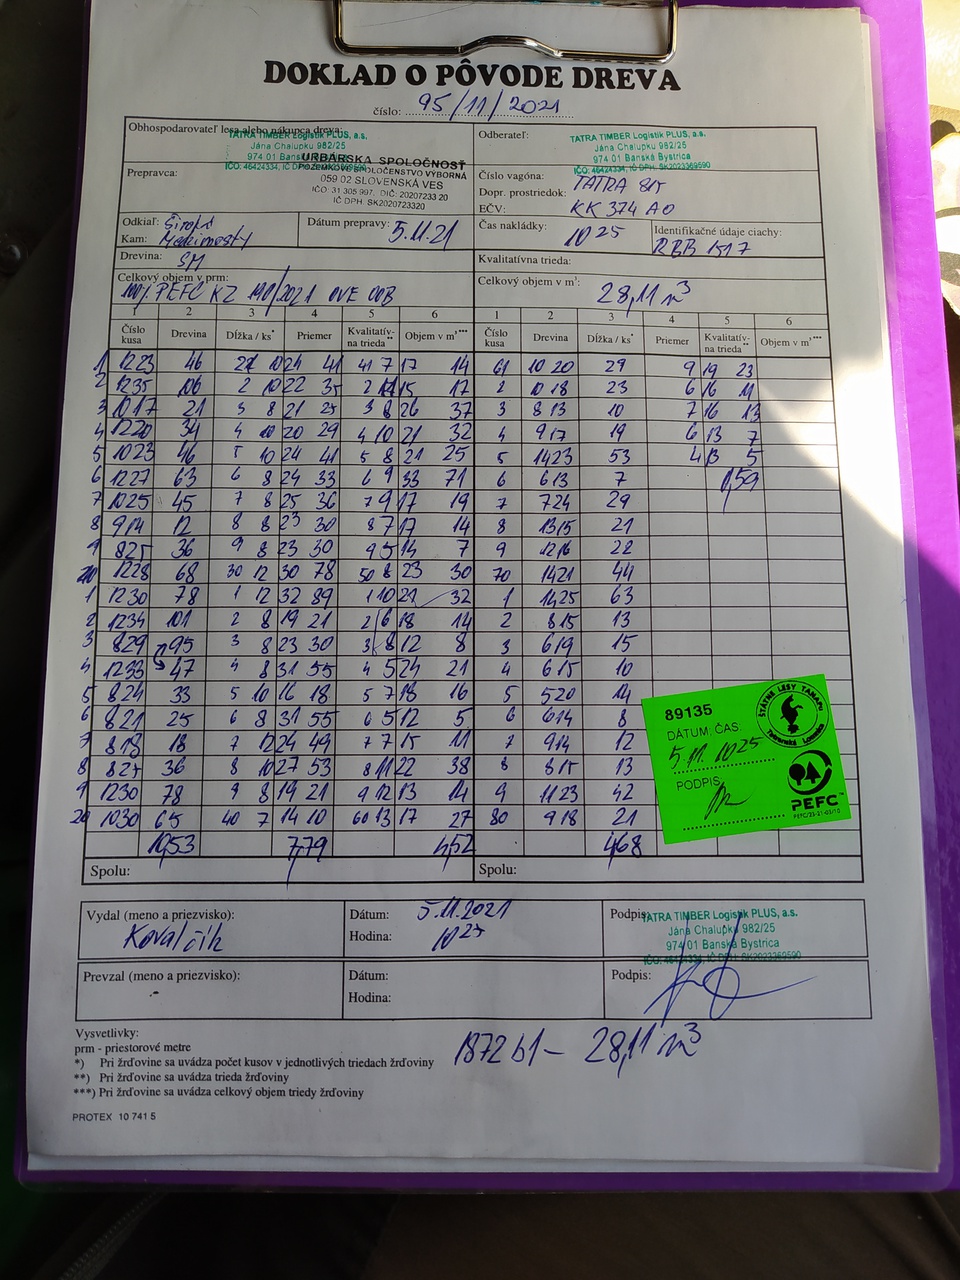 DOKLAD O PÔVODE DREVA
číslo: 95/11/2021
Obhospodarovateľ lesa alebo nákupca dreva:
TATRA TIMBER Logistik PLUS, a.s.
Jána Chalupku 982/25
974 01 Banská
IČO: 46424334, IČ DPH: SK2023369590
URBÁRSKA SPOLOČNOSŤ
POZEMKOVÉ SPOLOČENSTVO VÝBORNÁ
059 02 SLOVENSKÁ VES
IČO: 31 305 997, DIČ: 20207233 20
IČ DPH: SK2020723320
Prepravca:
Odberateľ:
TATRA TIMBER Logistik PLUS, a.s.
Jána Chalupku 982/25
974 01 Banská Bystrica
IČO: 46424334, IČ DPH: SK2023369590
Číslo vagóna:
Dopr. prostriedok: TATRA 815
EČV: KK 374 AO
Odkiaľ:
Kam:
Dátum prepravy: 5.11.21
Čas nakládky: 10 25
Identifikačné údaje ciachy:
RBB 1517
Drevina: SM
Kvalitatívna trieda:
Celkový objem v prm:
100% PEFC KZ 190/2021 OVE 00B
Celkový objem v m³: 28,11 m³
1 2 3 4 5 6 1 2 3 4 5 6
Číslo kusa Drevina Dĺžka / ks* Priemer Kvalitatív-na trieda** Objem v m³*** Číslo kusa Drevina Dĺžka / ks* Priemer Kvalitatív-na trieda** Objem v m³***
1 1223 46 21 10 24 41 41 7 17 14 61 10 20 29 9 19 23
2 1235 106 2 10 22 35 2 15 17 2 10 18 23 6 16 11
3 1017 21 3 8 21 25 3 8 26 37 3 8 13 10 7 16 13
4 1220 34 4 10 20 29 4 10 21 32 4 9 17 19 6 13 7
5 1023 46 5 10 24 41 5 8 21 25 5 1423 53 4 13 5
6 1227 63 6 8 24 33 6 9 33 71 6 613 7 0,59
7 1025 45 7 8 25 36 7 9 17 19 7 724 29
8 914 12 8 8 23 30 8 7 17 14 8 1315 21
9 825 36 9 8 23 30 9 5 14 7 9 1216 22
10 1228 68 30 12 30 78 50 8 23 30 70 1421 44
1 1230 78 1 12 32 89 1 10 21 32 1 1425 63
2 1234 101 2 8 19 21 2 6 18 14 2 815 13
3 829 95 3 8 23 30 3 8 12 8 3 619 15
4 1233 47 4 8 31 55 4 5 24 21 4 615 10
5 824 33 5 10 16 18 5 7 18 16 5 520 14
6 821 25 6 8 31 55 6 5 12 5 6 614 8
7 818 18 7 12 24 49 7 7 15 11 7 914 12
8 825 36 8 10 27 53 8 11 22 38 8 815 13
9 1230 78 9 8 19 21 9 12 13 14 9 1123 42
20 1030 65 40 7 14 10 60 13 17 27 80 918 21
10,53 7,79 4,52 4,68
Spolu: Spolu:
89135
DÁTUM, ČAS:
5.11. 1025
PODPIS:
ŠTÁTNE LESY TANAPU
Tatranská Lomnica
PEFC™
Vydal (meno a priezvisko):
Kovalčik
Dátum: 5.11.2021
Hodina: 10 25
Podpis:
TATRA TIMBER Logistik PLUS, a.s.
Jána Chalupku 982/25
974 01 Banská Bystrica
IČO: 46424334, IČ DPH: SK2023369590
Prevzal (meno a priezvisko):
Dátum:
Hodina:
Podpis:
Vysvetlivky:
prm - priestorové metre
*) Pri žrďovine sa uvádza počet kusov v jednotlivých triedach žrďoviny
**) Pri žrďovine sa uvádza trieda žrďoviny
***) Pri žrďovine sa uvádza celkový objem triedy žrďoviny
1872 b1 - 28,11 m³
PROTEX 10 741 5